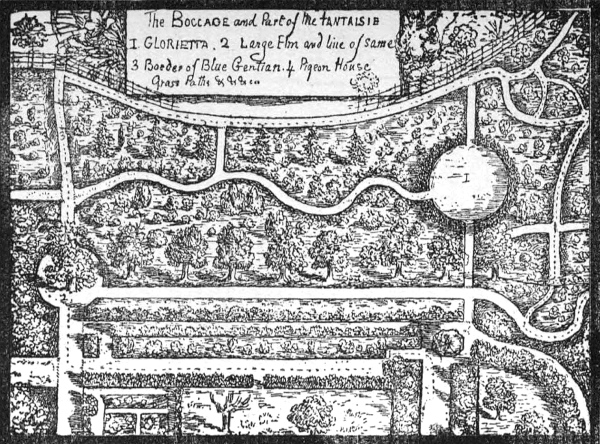 The BOCCAGE and Part of the FANTAISIE
1. GLORIETTA. 2 Large Elm and line of same
3 Border of Blue Gentian. 4 Pigeon House
Grass Paths &c &c &c
I